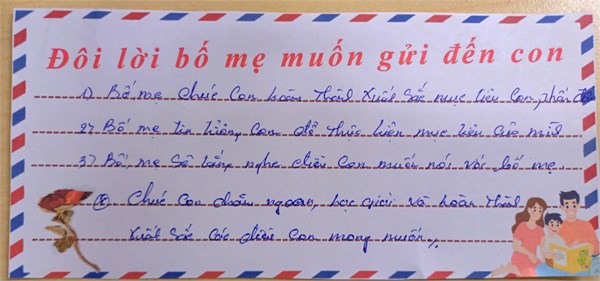 Đôi lời bố mẹ muốn gửi đến con
1) Bố mẹ chúc con hoàn thành xuất sắc mục tiêu con phấn đấu
2) Bố mẹ tin tưởng con để thực hiện mục tiêu của mình
3) Bố, mẹ sẽ lắng nghe điều con muốn nói với bố mẹ.
Chúc con chăm ngoan, học giỏi và hoàn thành
xuất sắc các điều con mong muốn.